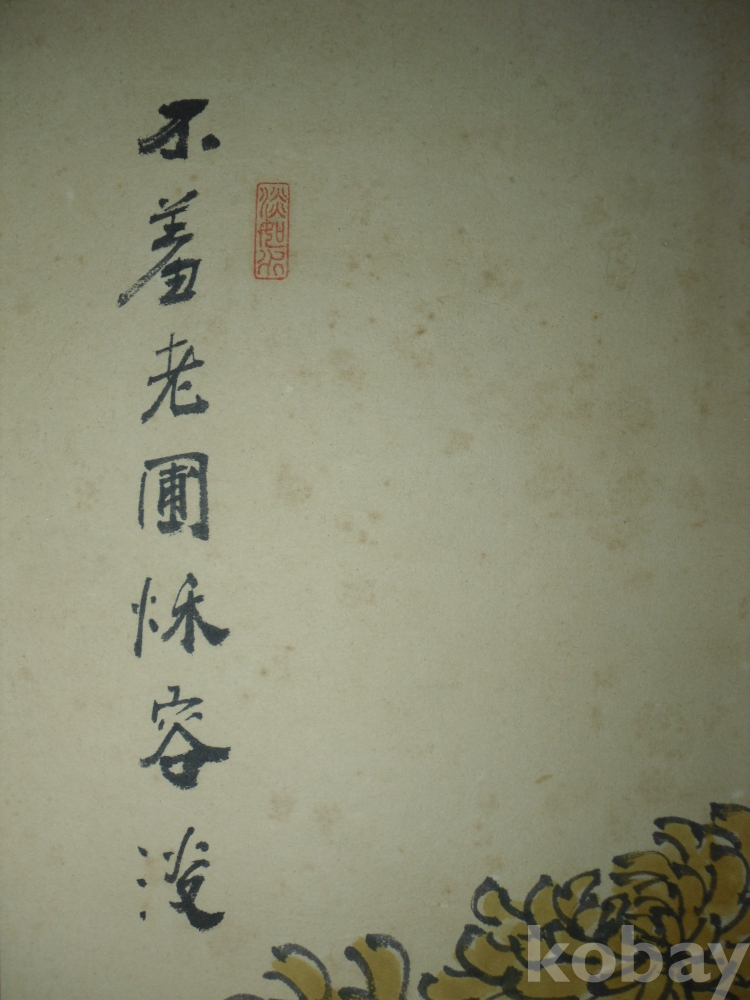 淡如水
不羞老圃秋容淡
kobay